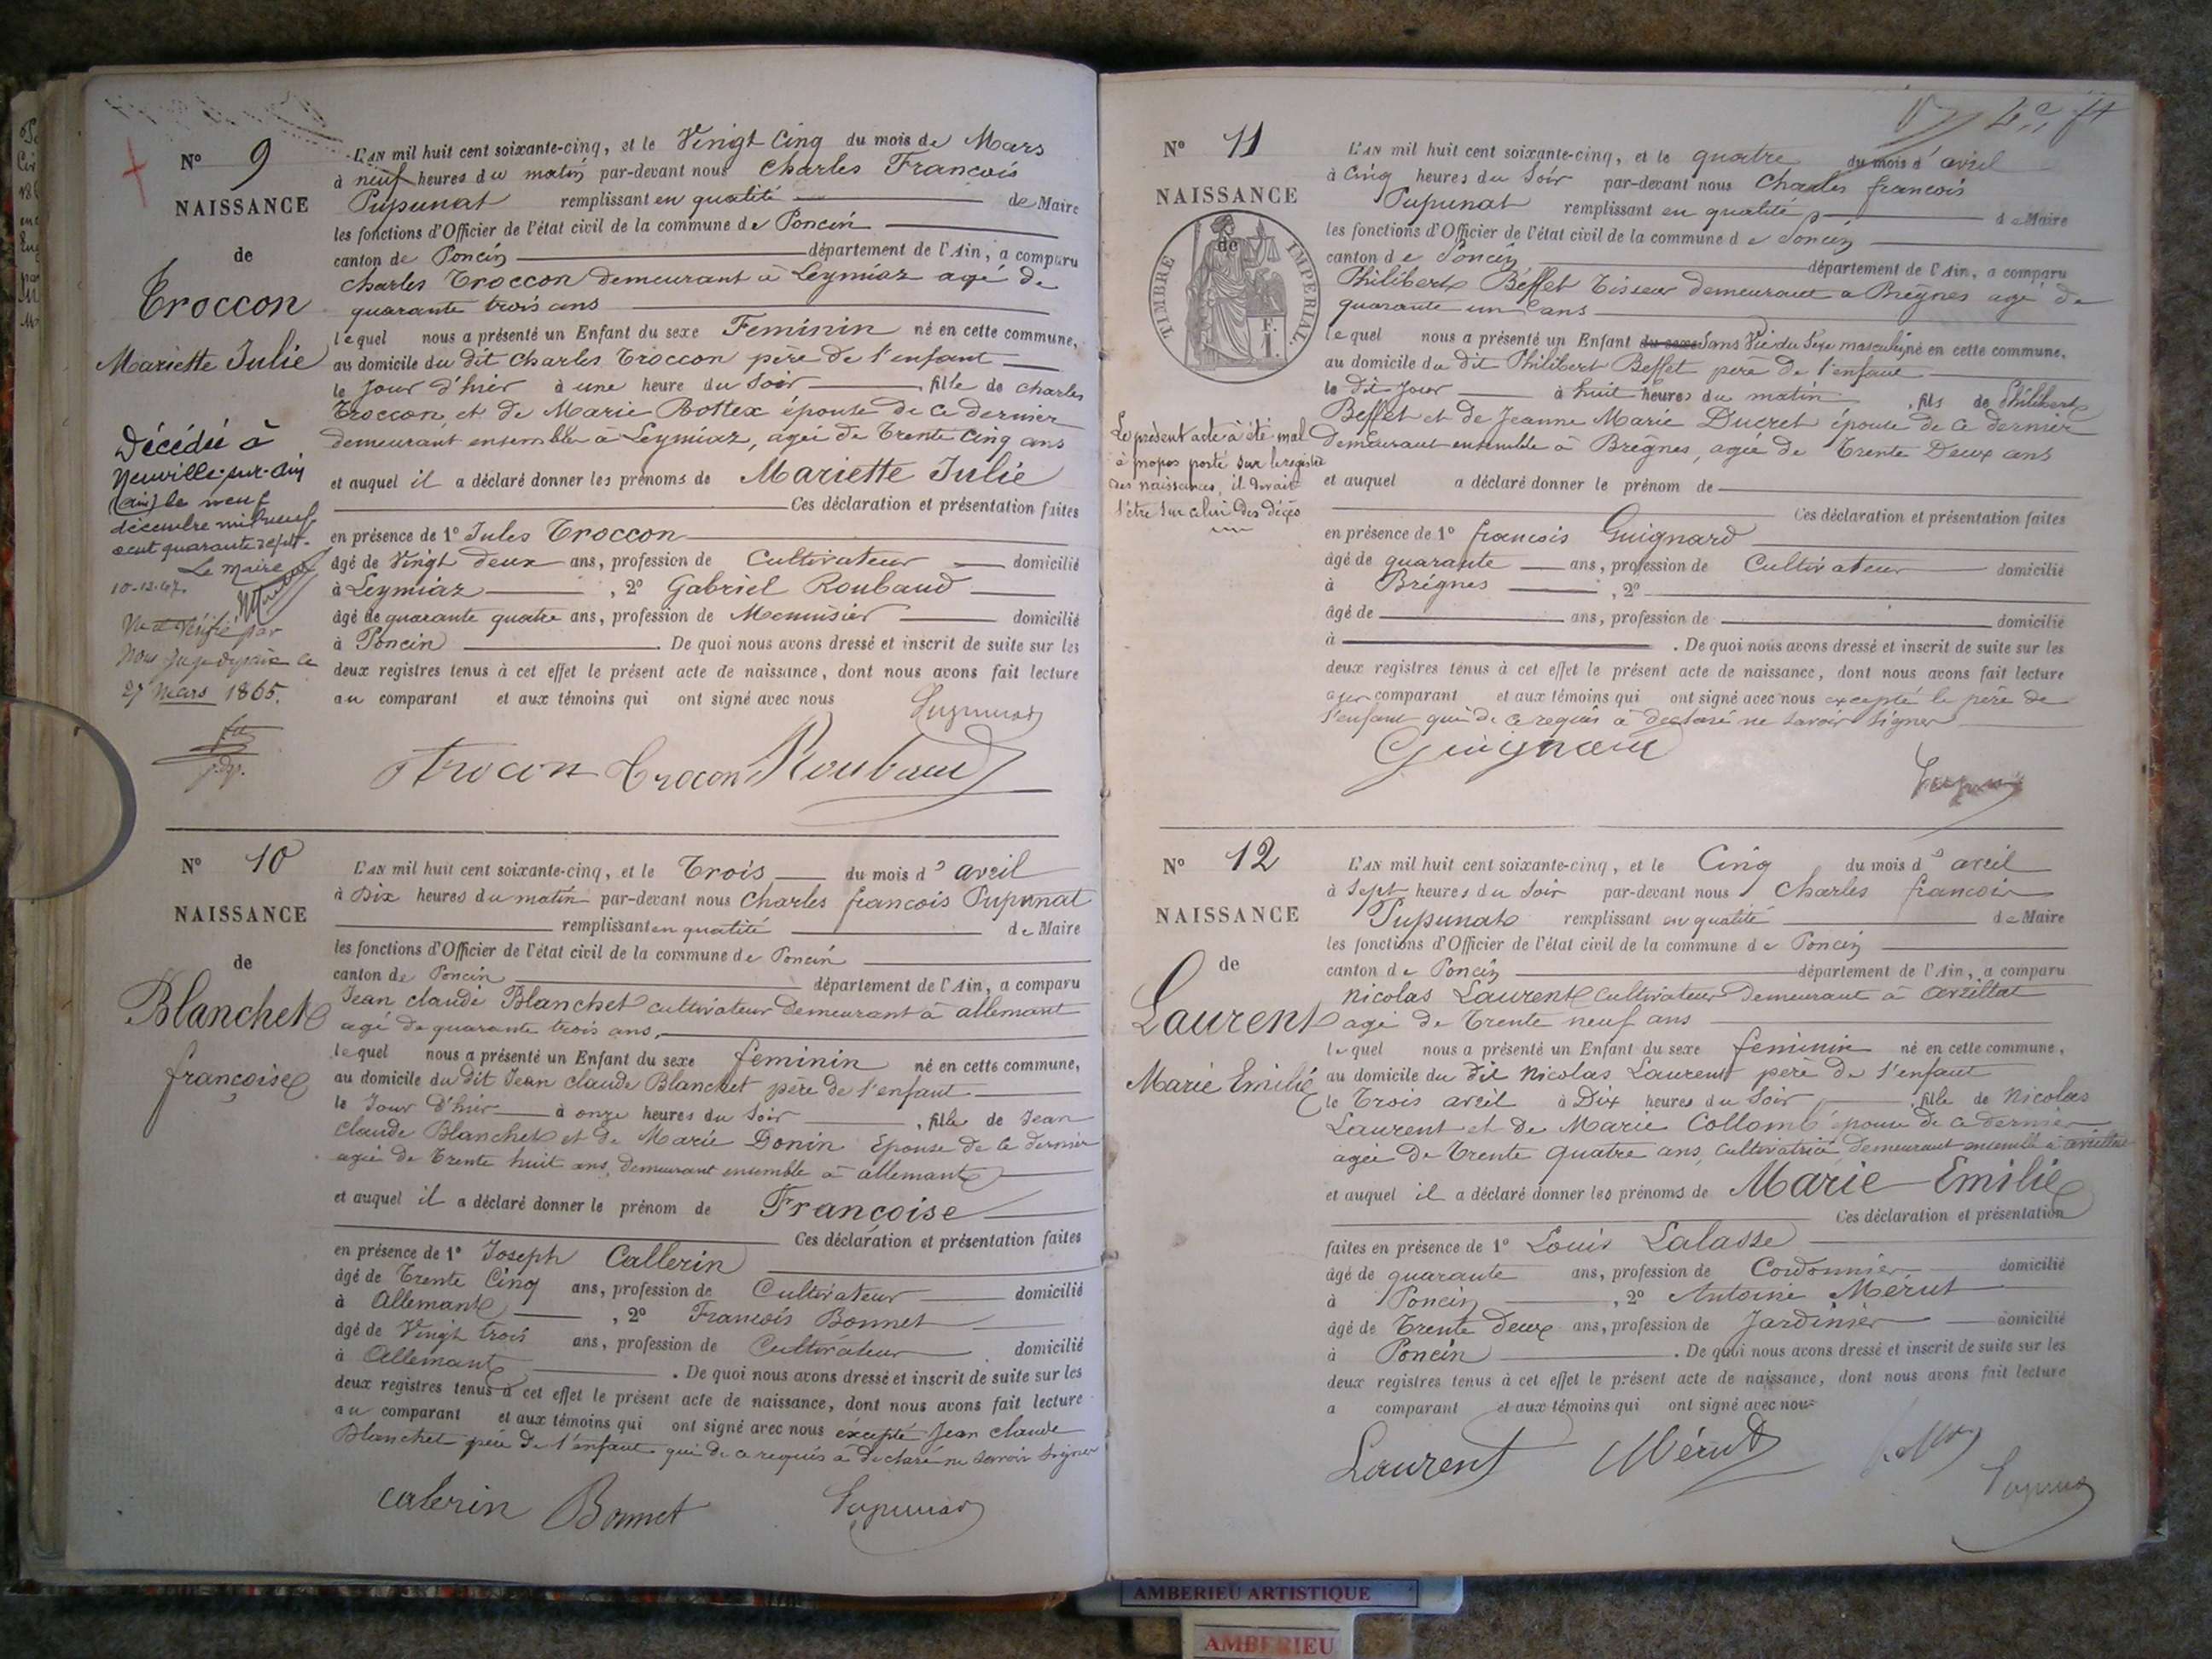 N° 9
NAISSANCE
de
Troccon
Mariette Julie
Décédée à
Neuville-sur-Ain
(Ain) le neuf
décembre mil neuf
cent quarante sept.
Le Maire
10-12-47.
Ne varietur par
Nous Juge de paix ce
27 Mars 1865.
L'AN mil huit cent soixante-cinq, et le Vingt Cinq du mois de Mars
à neuf heures du matin par-devant nous Charles Francois
Pupunat remplissant en qualité de Maire
les fonctions d'Officier de l'état civil de la commune de Poncin
canton de Poncin département de l'Ain, a comparu
Charles Troccon demeurant à Leymiaz agé de
quarante trois ans
lequel nous a présenté un Enfant du sexe Feminin né en cette commune,
au domicile du dit Charles Troccon père de l'enfant
le Jour d'hier à une heure du Soir, fille de Charles
Troccon, et de Marie Bottex épouse de ce dernier
demeurant ensemble à Leymiaz, agée de Trente Cinq ans
et auquel il a déclaré donner les prénoms de Mariette Julie
Ces déclaration et présentation faites
en présence de 1° Jules Troccon
âgé de Vingt deux ans, profession de Cultivateur domicilié
à Leymiaz, 2° Gabriel Roubaud
âgé de quarante quatre ans, profession de Menuisier domicilié
à Poncin. De quoi nous avons dressé et inscrit de suite sur les
deux registres tenus à cet effet le présent acte de naissance, dont nous avons fait lecture
au comparant et aux témoins qui ont signé avec nous
Pupunat
Trocon Trocon Roubaud
N° 10
NAISSANCE
de
Blanchet
françoise
L'AN mil huit cent soixante-cinq, et le Trois du mois d'avril
à Dix heures du matin par-devant nous Charles francois Pupunat
remplissant en qualité de Maire
les fonctions d'Officier de l'état civil de la commune de Poncin
canton de Poncin département de l'Ain, a comparu
Jean claude Blanchet cultivateur demeurant à allemant
agé de quarante trois ans,
lequel nous a présenté un Enfant du sexe feminin né en cette commune,
au domicile du dit Jean claude Blanchet père de l'enfant
le Jour d'hier à onze heures du Soir, fille de Jean
Claude Blanchet et de Marie Donin Epouse de ce dernier
agée de Trente huit ans, demeurant ensemble à allemant
et auquel il a déclaré donner le prénom de Françoise
Ces déclaration et présentation faites
en présence de 1° Joseph Callerin
âgé de Trente Cinq ans, profession de Cultivateur domicilié
à Allemant, 2° Francois Bonnet
âgé de Vingt trois ans, profession de Cultivateur domicilié
à Allemant. De quoi nous avons dressé et inscrit de suite sur les
deux registres tenus à cet effet le présent acte de naissance, dont nous avons fait lecture
au comparant et aux témoins qui ont signé avec nous excepté Jean claude
Blanchet père de l'enfant qui de ce requis a déclaré ne savoir signer
calerin Bonnet Pupunat
N° 11
NAISSANCE
de
TIMBRE IMPERIAL
Le présent acte a été mal
à propos porté sur le registre
des naissances, il devait
l'être sur celui des décès
L'AN mil huit cent soixante-cinq, et le quatre du mois d'avril
à Cinq heures du Soir par-devant nous Charles francois
Pupunat remplissant en qualité de Maire
les fonctions d'Officier de l'état civil de la commune de Poncin
canton de Poncin département de l'Ain, a comparu
Philibert Beffet Tisseur demeurant a Brègnes agé de
quarante un ans
lequel nous a présenté un Enfant du sexe Sans Vie du Sexe masculin né en cette commune,
au domicile du dit Philibert Beffet père de l'enfant
le dit Jour à huit heures du matin, fils de Philibert
Beffet et de Jeanne Marie Ducret épouse de ce dernier
demeurant ensemble à Brègnes, agée de Trente Deux ans
et auquel a déclaré donner le prénom de
Ces déclaration et présentation faites
en présence de 1° francois Guignard
âgé de quarante ans, profession de Cultivateur domicilié
à Brégnes, 2°
âgé de ans, profession de domicilié
à. De quoi nous avons dressé et inscrit de suite sur les
deux registres tenus à cet effet le présent acte de naissance, dont nous avons fait lecture
au comparant et aux témoins qui ont signé avec nous excepté le père de
l'enfant qui de ce requis a déclaré ne savoir signer
Guignard
Pupunat
N° 12
NAISSANCE
de
Laurent
Marie Emilie
L'AN mil huit cent soixante-cinq, et le Cinq du mois d'avril
à Sept heures du Soir par-devant nous Charles francois
Pupunat remplissant en qualité de Maire
les fonctions d'Officier de l'état civil de la commune de Poncin
canton de Poncin département de l'Ain, a comparu
Nicolas Laurent Cultivateur Demeurant à avrillat
agé de Trente neuf ans
lequel nous a présenté un Enfant du sexe feminin né en cette commune,
au domicile du dit Nicolas Laurent père de l'enfant
le Trois avril à Dix heures du Soir, fille de Nicolas
Laurent et de Marie Collomb épouse de ce dernier
agée de Trente quatre ans, Cultivatrice demeurant ensemble à avrillat
et auquel il a déclaré donner les prénoms de Marie Emilie
Ces déclaration et présentation
faites en présence de 1° Louis Lalasse
âgé de quarante ans, profession de Cordonnier domicilié
à Poncin, 2° Antoine Mérut
âgé de Trente deux ans, profession de Jardinier domicilié
à Poncin. De quoi nous avons dressé et inscrit de suite sur les
deux registres tenus à cet effet le présent acte de naissance, dont nous avons fait lecture
a comparant et aux témoins qui ont signé avec nous
Laurent Mérut
Pupunat
AMBERIEU ARTISTIQUE
AMBERIEU